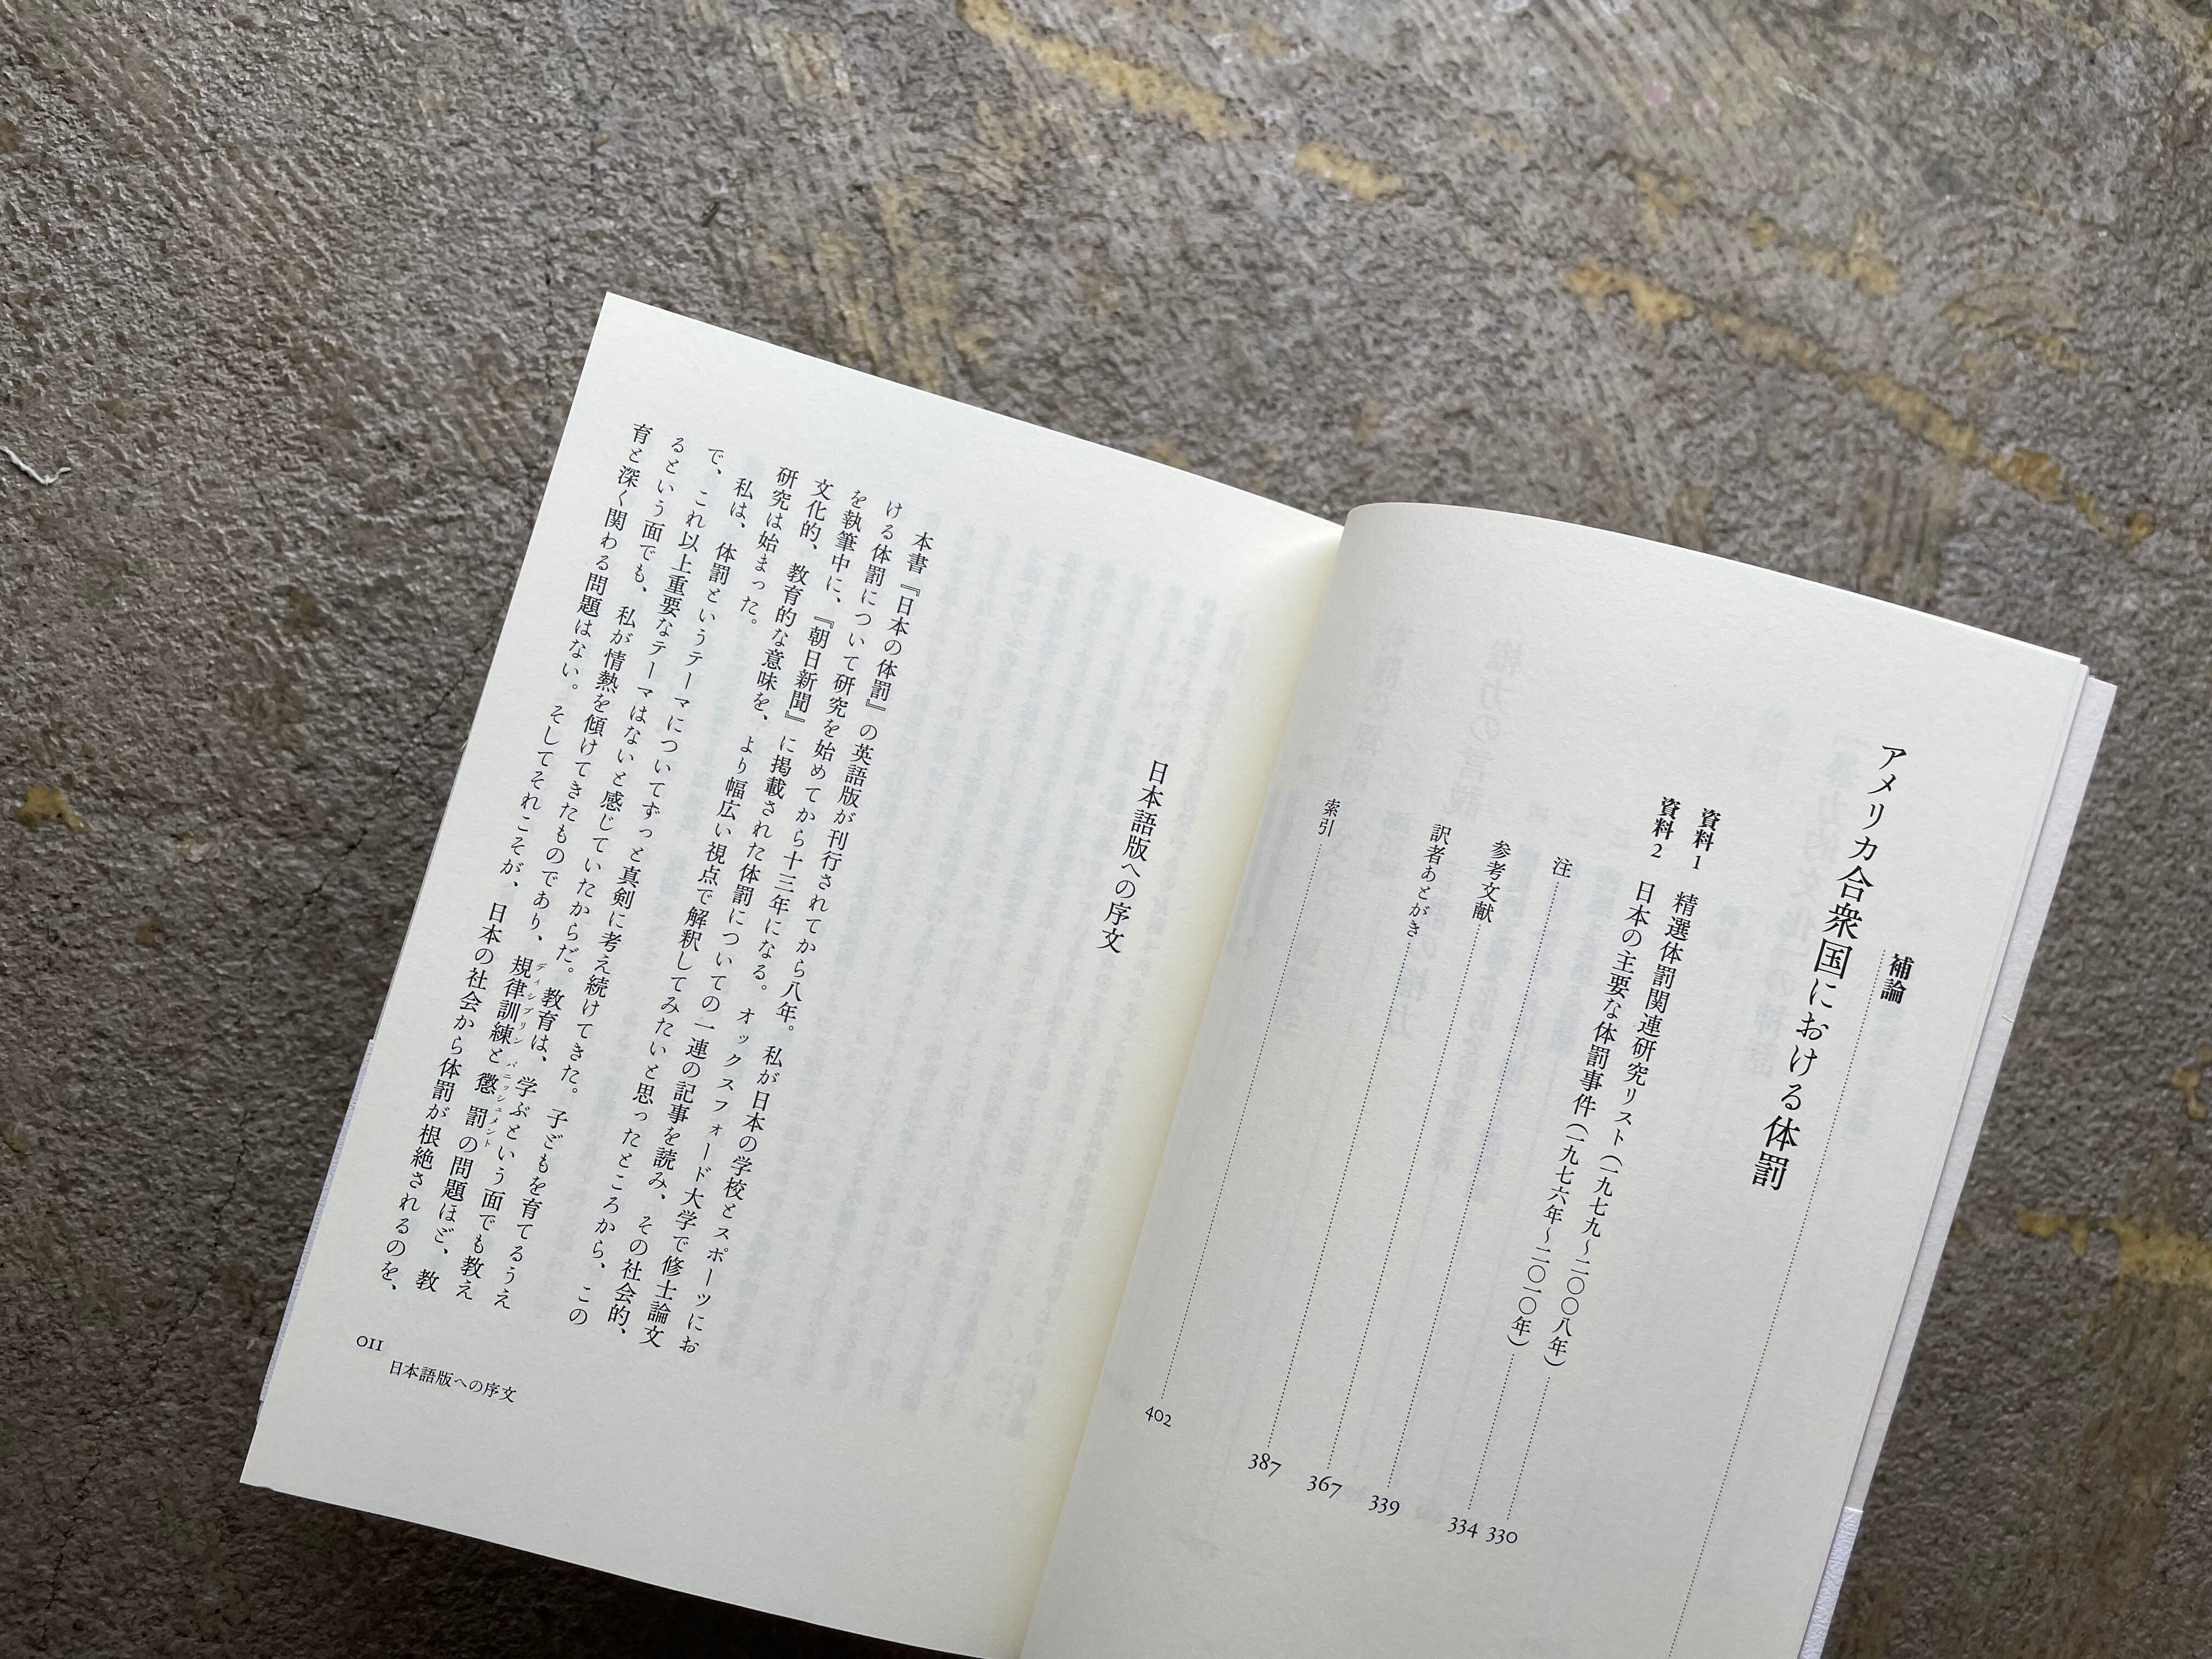 補論
アメリカ合衆国における体罰
資料1 精選体罰関連研究リスト（一九七九〜二〇〇八年） 330
資料2 日本の主要な体罰事件（一九七六年〜二〇一〇年） 334
注 339
参考文献 367
訳者あとがき 387
索引 402
日本語版への序文
本書『日本の体罰』の英語版が刊行されてから八年。私が日本の学校とスポーツにお
ける体罰について研究を始めてから十三年になる。オックスフォード大学で修士論文
を執筆中に、『朝日新聞』に掲載された体罰についての一連の記事を読み、その社会的、
文化的、教育的な意味を、より幅広い視点で解釈してみたいと思ったところから、この
研究は始まった。
私は、体罰というテーマについてずっと真剣に考え続けてきた。子どもを育てるうえ
で、これ以上重要なテーマはないと感じていたからだ。教育は、学ぶという面でも教え
るという面でも、私が情熱を傾けてきたものであり、規律訓練と懲罰の問題ほど、教
ディシプリン パニッシュメント
育と深く関わる問題はない。そしてそれこそが、日本の社会から体罰が根絶されるのを、
011 日本語版への序文